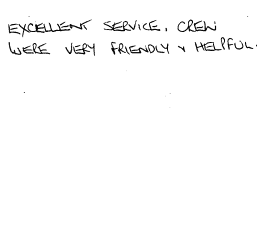 EXCELLENT SERVICE, CREW
WERE VERY FRIENDLY & HELPFUL.